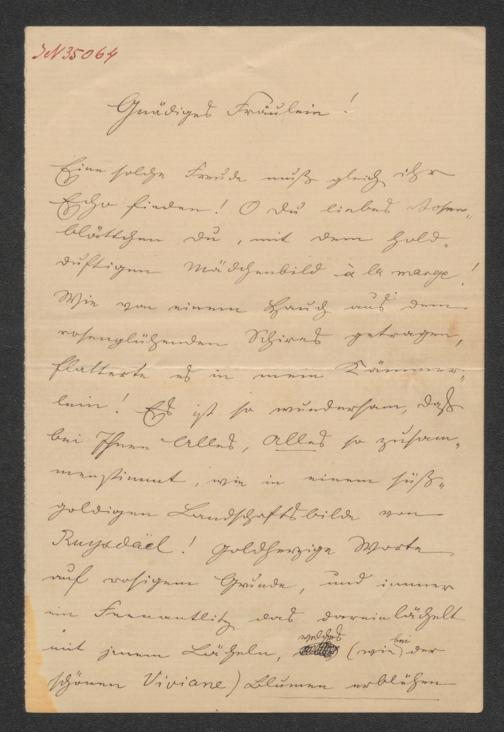 JN 35064
Gnädiges Fräulein!
Eine solche Freude muß gleich ihr
Echo finden! O du liebes Rosen-
blättchen du, mit dem hold-
duftigen Mädchenbild à la marge!
Wie von einem Hauch aus dem
rosenglühenden Schiras getragen,
flatterte es in mein Kämmer-
lein! Es ist so wundersam, daß
bei Ihnen Alles, Alles so zusam-
menstimmt, wie in einem süß-
goldigen Landschaftsbilde von
Ruysdäel! Goldherzige Worte
auf rosigem Grunde, und immer
ein Feenantlitz das dareinlächelt
mit jenem Lächeln, welches (wie bei der
schönen Viviane) Blumen erblühen